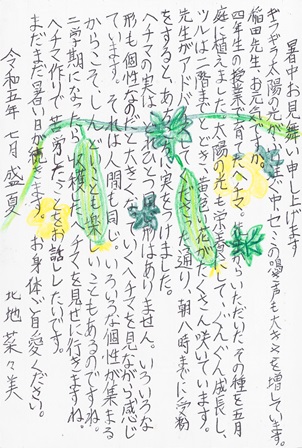 暑中お見舞い申し上げます
ギラギラ太陽の光が ぐ中セミの鳴き声も大きさを増しています。
稲田先生、お元気
四年生の授業で育てたヘチマ。 いただいたその種を五月
庭に植えました。太陽の光も栄養にして、ぐんぐん成長し、
ツルは二階までとどき、黄色い花がたくさん咲いています。
先生がアドバ くださった通り、朝八時までに受粉
をすると、 実を ました。
ヘチマの実は ひとつ 形はありません。いろいろな
形も個性なのだと大きくなっていくヘチマを見ながら感じ
ています。それは人間も同じ。いろいろな個性が集まる
からこそ、 ことも楽しいこともあるのですね。
二学期になったら収穫したヘチマを見せに行きますね。
ヘチマ作りで苦労したことをお話したいです。
まだまだ暑い日が続きます。お身体ご自愛ください。
令和五年 七月 盛夏
北地 菜々美